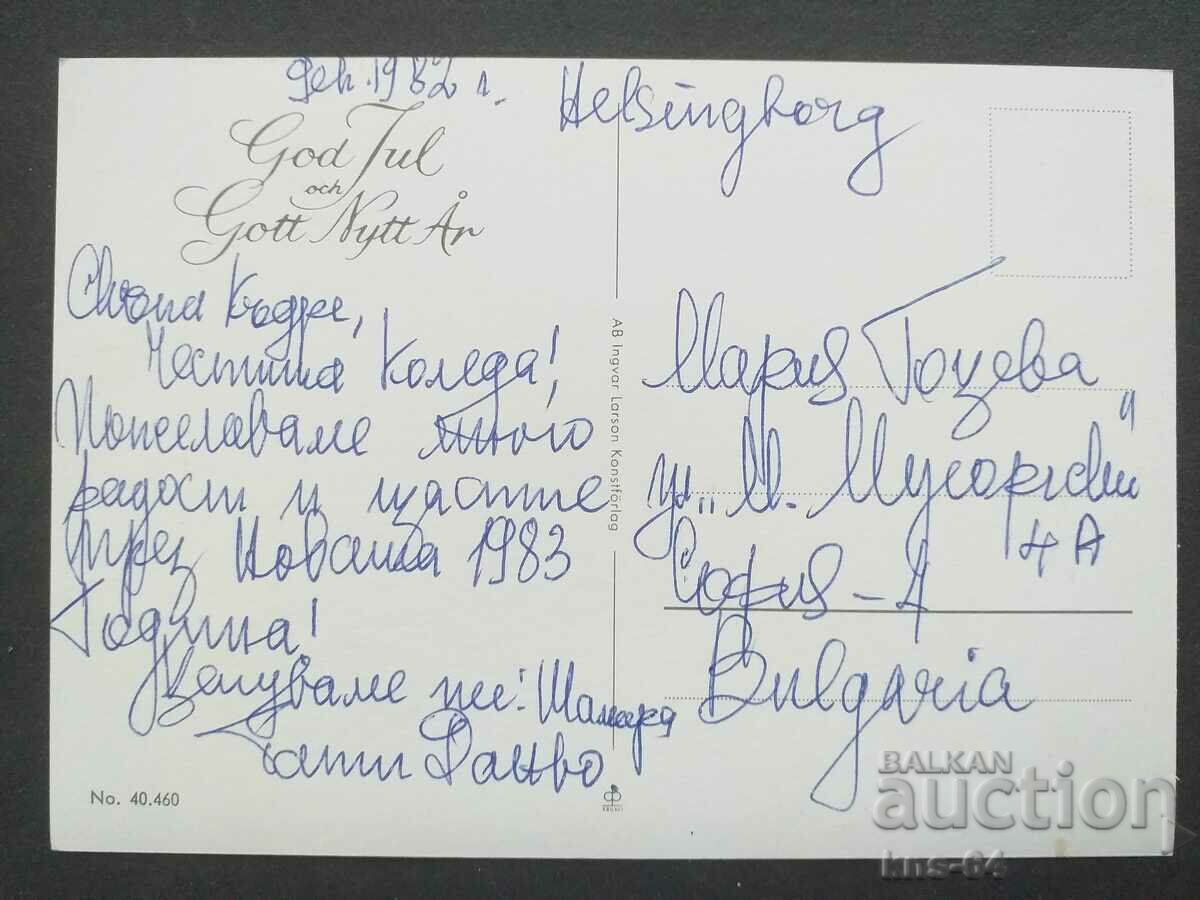 Дек. 1982 г.
Helsingborg
God Jul
och
Gott Nytt År
Скъпа
Честита Коледа!
Пожелаваме много
радост и щастие
през Новата 1983
Година!
Целуваме те:
Тати
No. 40.460
AB Ingvar Larson Konstförlag
Мария Гоцева
ул. „М. Мусоргски"
4 А
София - 
Bulgaria
BALKAN
auction
kns-64